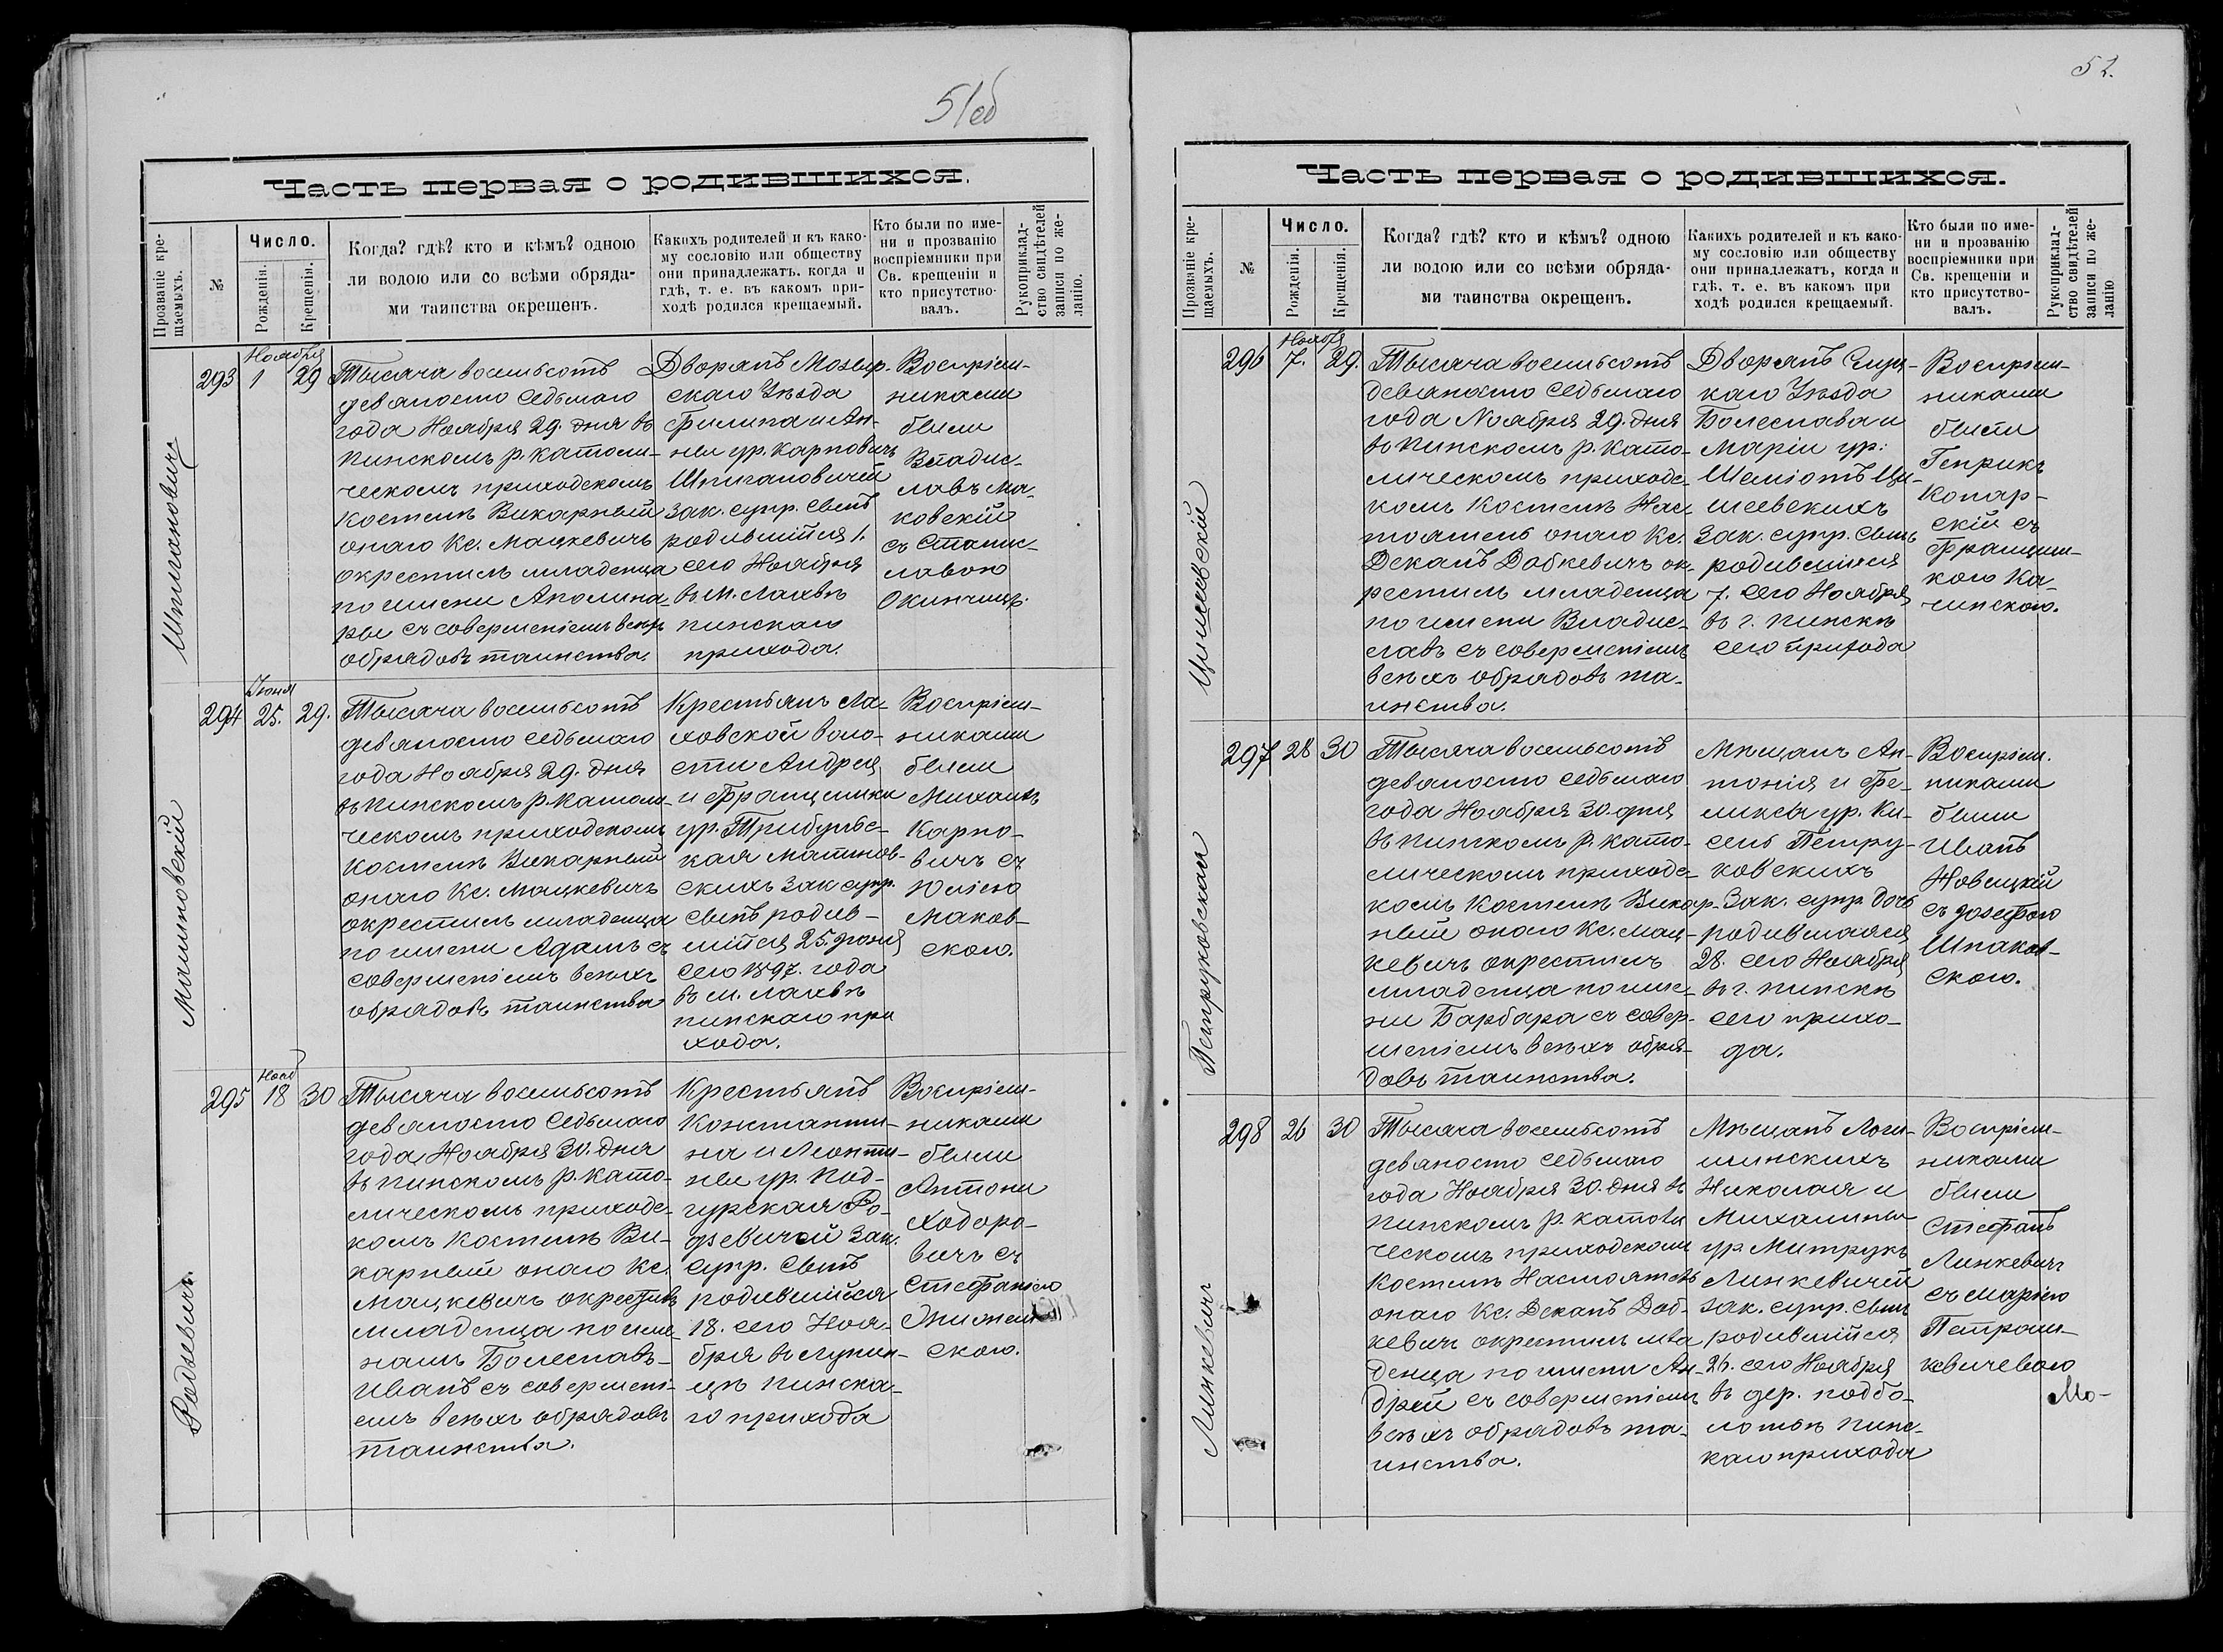 51об
Часть первая о родившихся.
Прозваніе кре-
щаемыхъ.
№
Число.
Рожденія.
Крещенія.
Когда? гдѣ? кто и кѣмъ? одною
ли водою или со всѣми обряда-
ми таинства окрещенъ.
Какихъ родителей и къ како-
му сословію или обществу
они принадлежатъ. когда и
гдѣ, т. е. въ какомъ при-
ходѣ родился крещаемый.
Кто были по име-
ни и прозванію
воспріемники при
Св. крещеніи и
кто присутство-
валъ.
Рукоприклад-
ство свидѣтелей
записи по же-
ланію.
Шпигановичъ
293
Ноября
1
29
Тысяча восемьсотъ
девяносто седьмаго
года Ноября 29. дня въ
Пинскомъ р. католи-
ческомъ приходскомъ
костелѣ Викарный
онаго Кс. Мацкевичъ
окрестилъ младенца
по имени Аполина-
ры съ совершеніемъ всѣхъ
обрядовъ таинства.
Дворянъ Мозыр-
скаго Уѣзда
Филипа и Ан-
ны ур. Карповичъ
Шпигановичей
зак. супр. сынъ
родившійся 1.
сего Ноября
въ м. Лахвѣ
пинскаго
прихода.
Воспріем-
никами
были
Владис-
лавъ Ма-
ковскій
съ Станис-
лавою
Окинчицъ.
Машиновскій
294
Іюня
25.
29.
Тысяча восемьсотъ
девяносто седьмаго
года Ноября 29. дня
въ Пинскомъ р. католи-
ческомъ приходскомъ
костелѣ Викарный
онаго Кс. Мацкевичъ
окрестилъ младенца
по имени Адамъ съ
совершеніемъ всѣхъ
обрядовъ таинства
Крестьянъ Ла-
ховской воло-
сти Андрея
и Францишки
ур. Трибульс-
кая Машинов-
скихъ зак супр.
сынъ родив-
шійся 25. Іюня
сего 1897. года
въ м. Лахвѣ
пинскаго при
хода.
Воспріем-
никами
были
Михаилъ
Карпо-
вичъ съ
Юліею
Маков-
скою.
Родзевичъ.
295
Нояб
18
30
Тысяча восемьсотъ
девяносто седьмаго
года Ноября 30. дня
въ Пинскомъ р. като-
лическомъ приходс-
комъ костелѣ Ви-
карный онаго Кс.
Мацкевичъ окрестилъ
младенца по име-
намъ Болеславъ-
Иванъ съ совершені-
емъ всѣхъ обрядовъ
таинства.
Крестьянъ
Константи-
на и Леонти-
ны ур. Под-
гурская Ро-
дзевичей зак.
супр. сынъ
родившійся
18. сего Ноя-
бря въ Лунин-
цѣ Пинска-
го прихода
Воспріем-
никами
были
Антони
Ходоро-
вичъ съ
Стефаніею
скою.
52.
Часть первая о родившихся.
Прозваніе кре-
щаемыхъ.
№
Число.
Рожденія.
Крещенія.
Когда? гдѣ? кто и кѣмъ? одною
ли водою или со всѣми обряда-
ми таинства окрещенъ.
Какихъ родителей и къ како-
му сословію или обществу
они принадлежатъ, когда и
гдѣ. т. е. въ какомъ при
ходѣ родился крещаемый.
Кто были по име-
ни и прозванію
воспріемники при
Св. крещеніи и
кто присутство-
валъ.
Рукоприклад-
ство свидѣтелей
записи по же-
ланію
Циmшевскій
296
Ноября
7.
29.
Тысяча восемьсотъ
девяносто седьмаго
года Ноября 29. дня
въ Пинскомъ р. като-
лическомъ приходс-
комъ костелѣ Нас-
тоятель онаго Кс.
Деканъ Добкевичъ ок-
рестилъ младенца
по имени Владис-
лавъ съ совершеніемъ
всѣхъ обрядовъ та-
инства.
Дворянъ Слуц-
каго Уѣзда
Болеслава и
Маріи ур:
Шеміотъ Ци-
шевскихъ
зак. супр. сынъ
родившійся
7. сего Ноября
въ г. Пинскѣ
сего прихода
Воспріем-
никами
были
Генрикъ
Копар-
скій съ
Франциш-
кою Ка-
чинскою.
Петруковская
297
28
30
Тысяча восемьсотъ
девяносто седьмаго
года Ноября 30. дня
въ Пинскомъ р. като-
лическомъ приходс-
комъ костелѣ Викар-
ный онаго Кс. Мац-
кевичъ окрестилъ
младенца по име-
ни Барбара съ совер-
шеніемъ всѣхъ обря-
довъ таинства.
Мѣщанъ Ан-
тонія и Фе-
ликсы ур. Ки-
сель Петру-
ковскихъ
зак. супр дочь
родившаяся
28. сего Ноября
въ г. Пинскѣ
сего прихо-
да.
Воспріем.
никами
были
Иванъ
Новицкій
съ Іозефою
Шпаков-
скою.
Линкевичъ
298
26
30
Тысяча восемьсотъ
девяносто седьмаго
года Ноября 30. дня въ
Пинскомъ р. католи
ческомъ приходскомъ
костелѣ Настоятель
онаго Кс. Деканъ Доб-
кевичъ окрестилъ мла
денца по имени Ан-
дрей съ совершеніемъ
всѣхъ обрядовъ та-
инства.
Мѣщанъ Логи-
шинскихъ
Николая и
Михалины
ур. Митрукъ
Линкевичей
зак. супр. сынъ
родившійся
26. сего Ноября
въ дер. Подбо-
лотьѣ Пинс-
каго прихода
Воспріем-
никами
были
Стефанъ
Линкевичъ
съ Маріею
Петраш-
кевичевою
Мо-